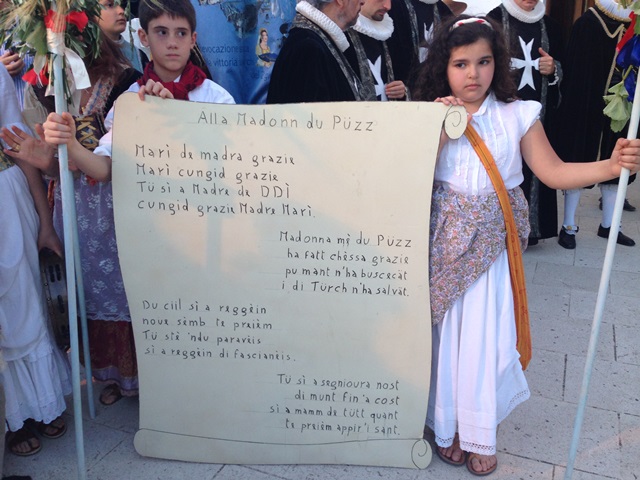 vocazione
vittoria
Alla Madonn du Püzz
Marì de madra grazie
Marì cungid grazie
Tü sì a Madre de DDÌ
cungid grazie Madre Marì.
Madonna mè du Püzz
ha fatt chèssa grazie
pu mant n'ha buscecàt
i di Türch n'ha salvàt.
Du ciil sì a reggèin
noue sèmb te preièm
Tü stè 'ndu paravèis
sì a reggèin di fascianèis.
Tü sì a segnioura nost
di munt fin'a cost
sì a mamm de tütt quant
te preièm appir'i sant.